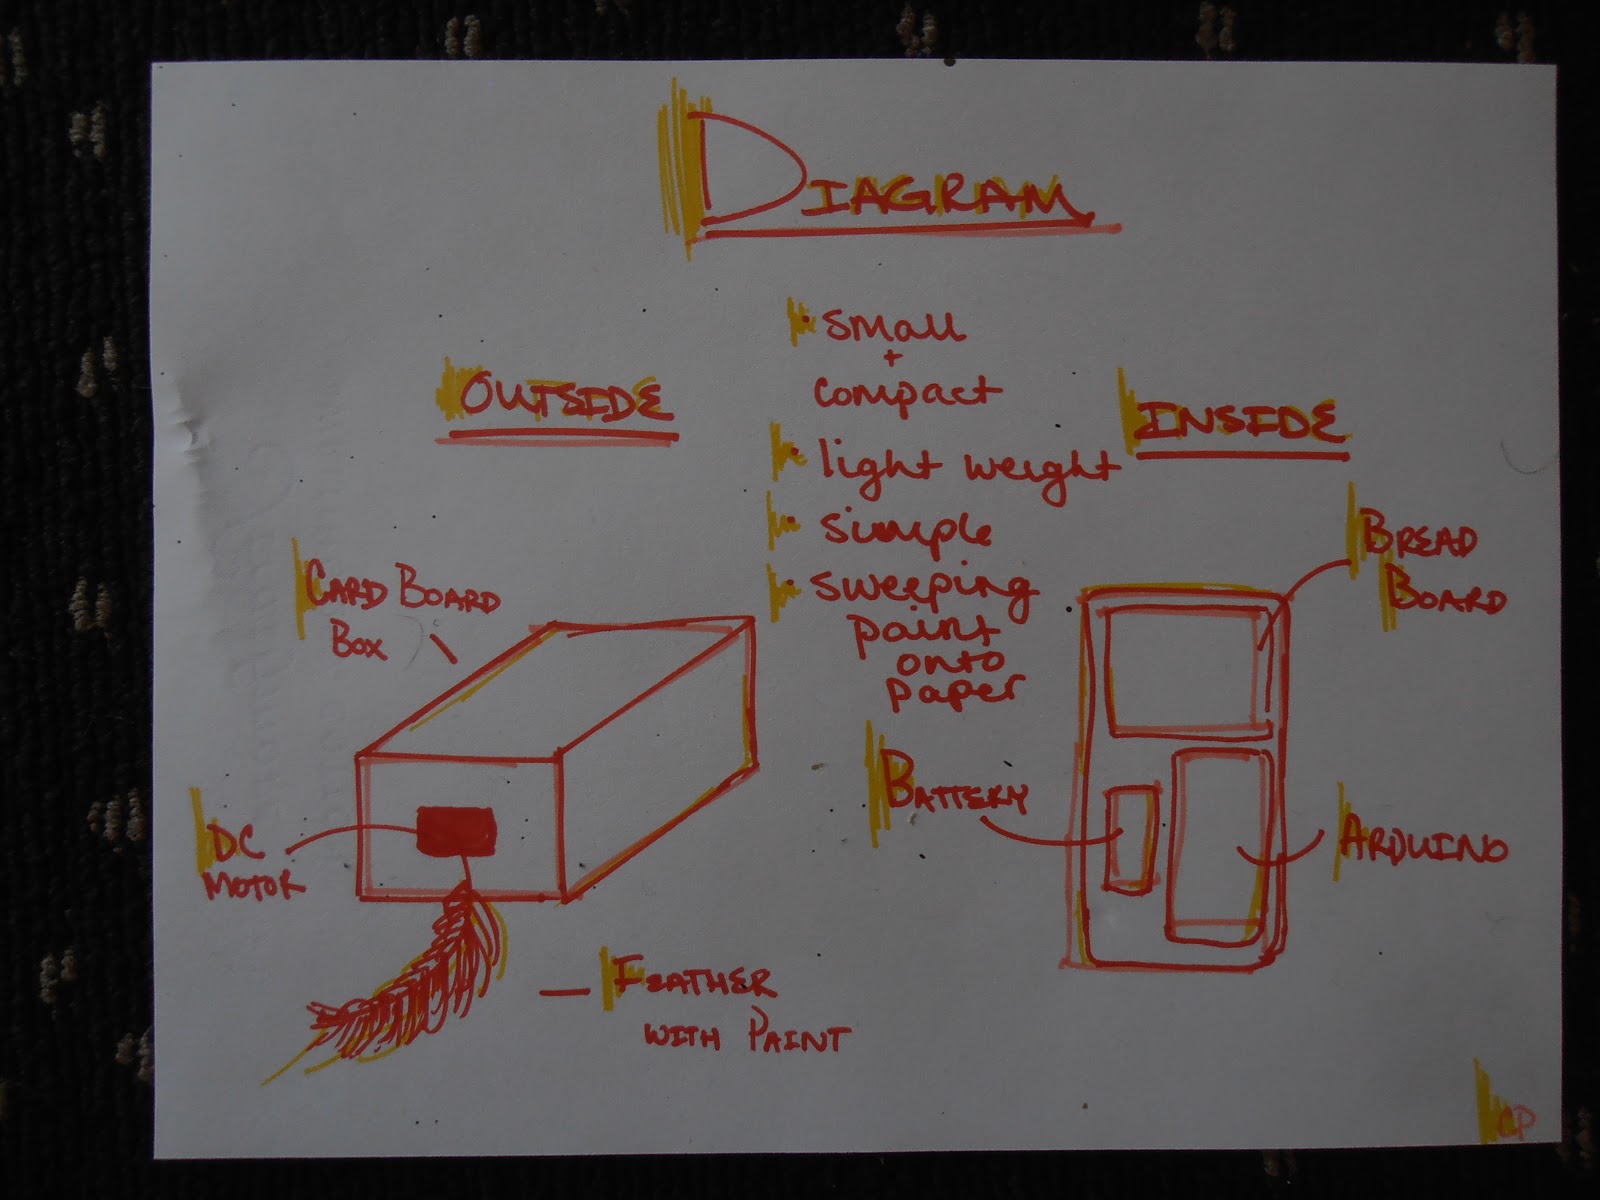 DIAGRAM
• small
+
compact
• light weight
• simple
• sweeping
paint
onto
paper
OUTSIDE
CARD BOARD
BOX
DC
MOTOR
FEATHER
WITH PAINT
INSIDE
BREAD
BOARD
BATTERY
ARDUINO
CP